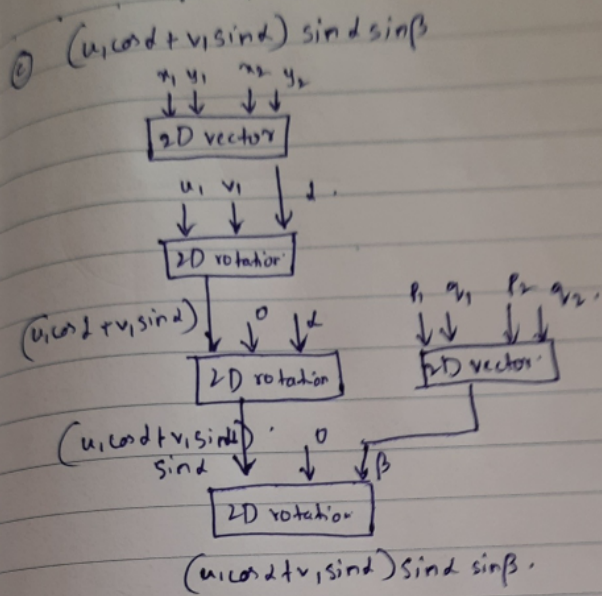 (c) (u₁cosα + v₁sinα) sinα sinβ
x₁ y₁ x₂ y₂
2D vector
u₁ v₁ α.
2D rotation
(u₁cosα + v₁sinα) 0 α
p₁ q₁ p₂ q₂.
2D rotation
2D vector
(u₁cosα + v₁sinα)
sinα
0
β
2D rotation
(u₁cosα + v₁sinα) sinα sinβ.